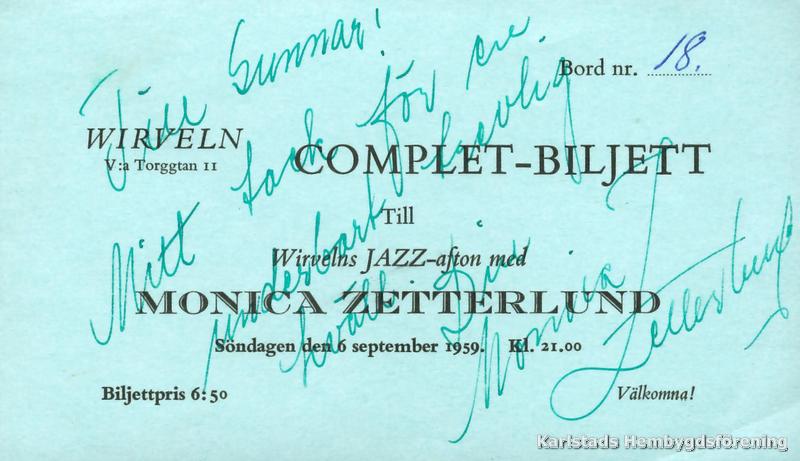 Bord nr. 18.
WIRVELN
V:a Torggtan 11
COMPLET-BILJETT
Till
Wirvelns JAZZ-afton med
MONICA ZETTERLUND
Söndagen den 6 september 1959. Kl. 21.00
Biljettpris 6:50
Välkomna!
Till Gunnar!
Mitt tack för en
underbart trevlig
kväll. Din
Monica Zetterlund
Karlstads Hembygdsförening